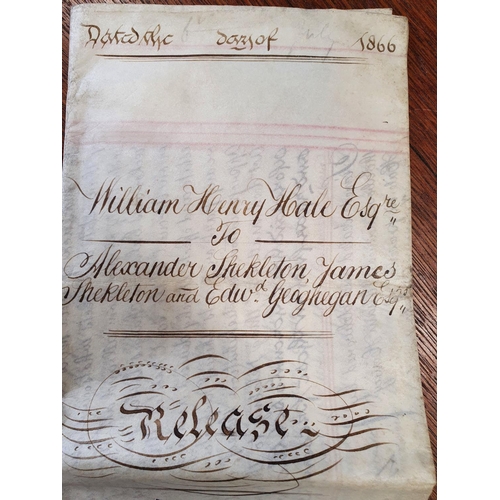 Dated the day of 1866
William Henry Hale Esqre
To
Alexander Shekleton, James
Shekleton and Edwd Geoghegan Esqrs
Release